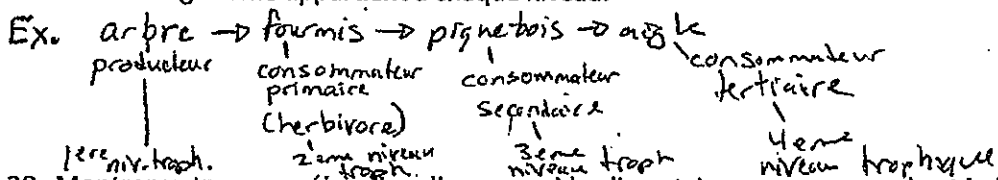 Ex. arbre → fourmis → pignebois → aigle
producteur consommateur primaire (herbivore) consommateur secondaire consommateur tertiaire
1ere niv. troph. 2eme niveau troph. 3eme niveau troph 4eme niveau trophique